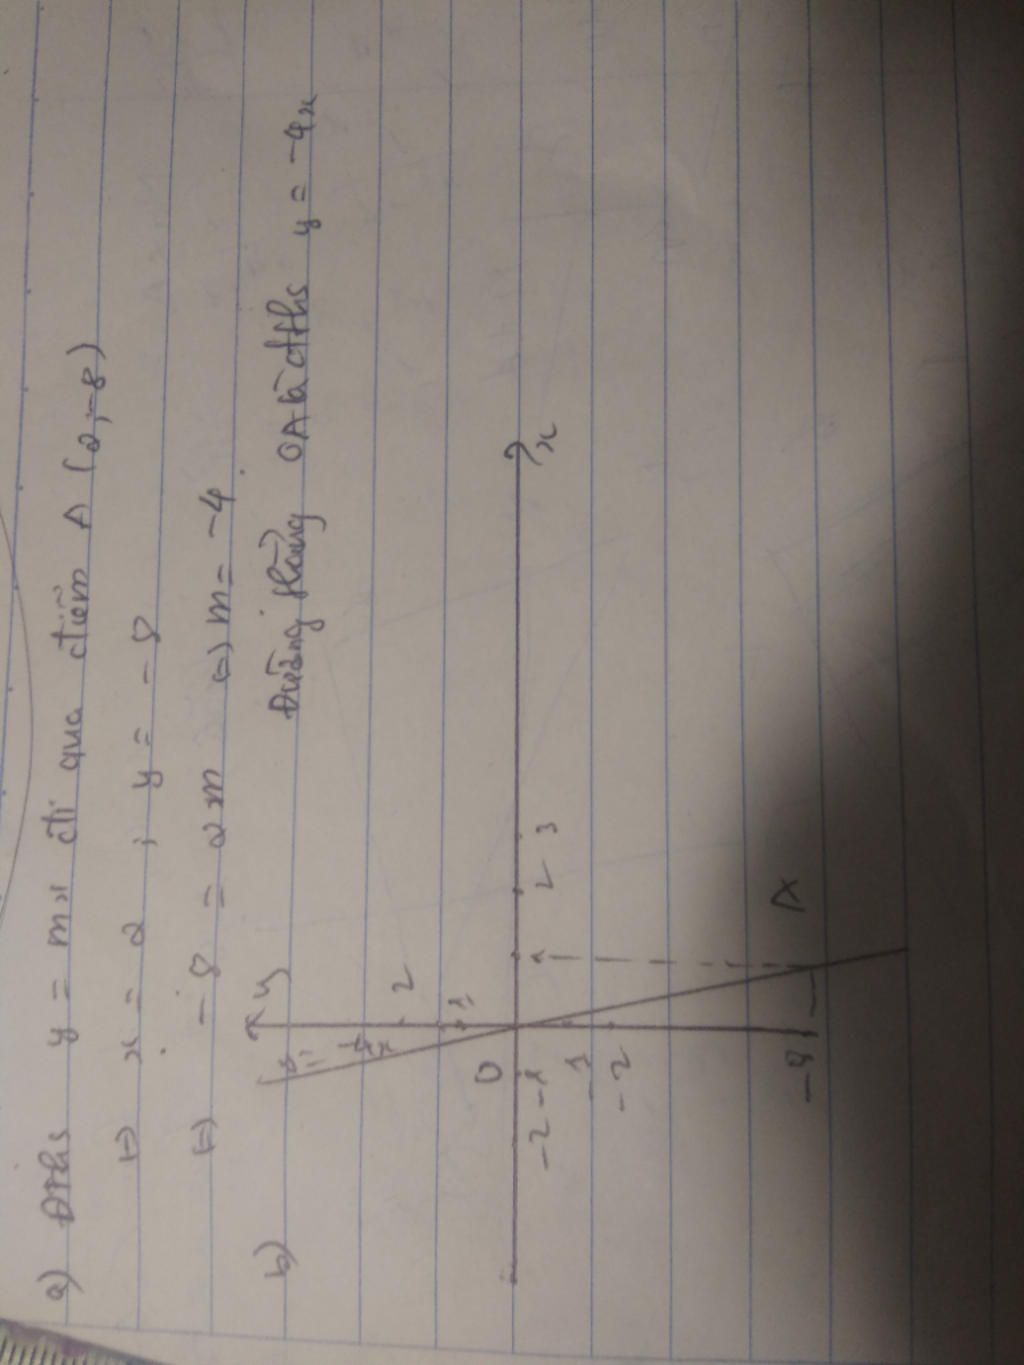 a) Đths y = mx đi qua điểm A (2;-8)
=) x = 2 ; y = -8
=) -8 = 2m =) m = -4
b) Đường thẳng OA là đths y = -4x
y
2
1
O
-2 -1
1 2 3
x
-1
-2
-4
A